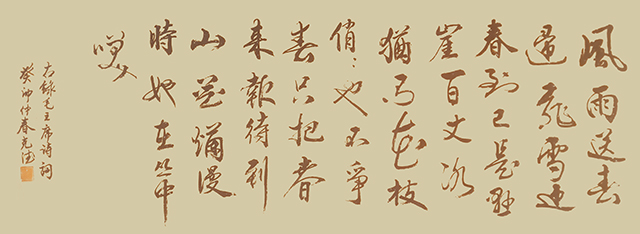 風雨送春
歸飛雪迎
春到已是懸
崖百丈冰
猶有花枝
俏〻也不爭
春只把春
来報待到
山花爛漫
時她在丛中
笑
右録毛主席詩詞
癸卯仲春